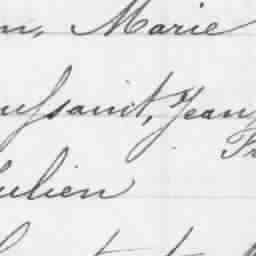 n, Marie
ussaint, Jean
ulien